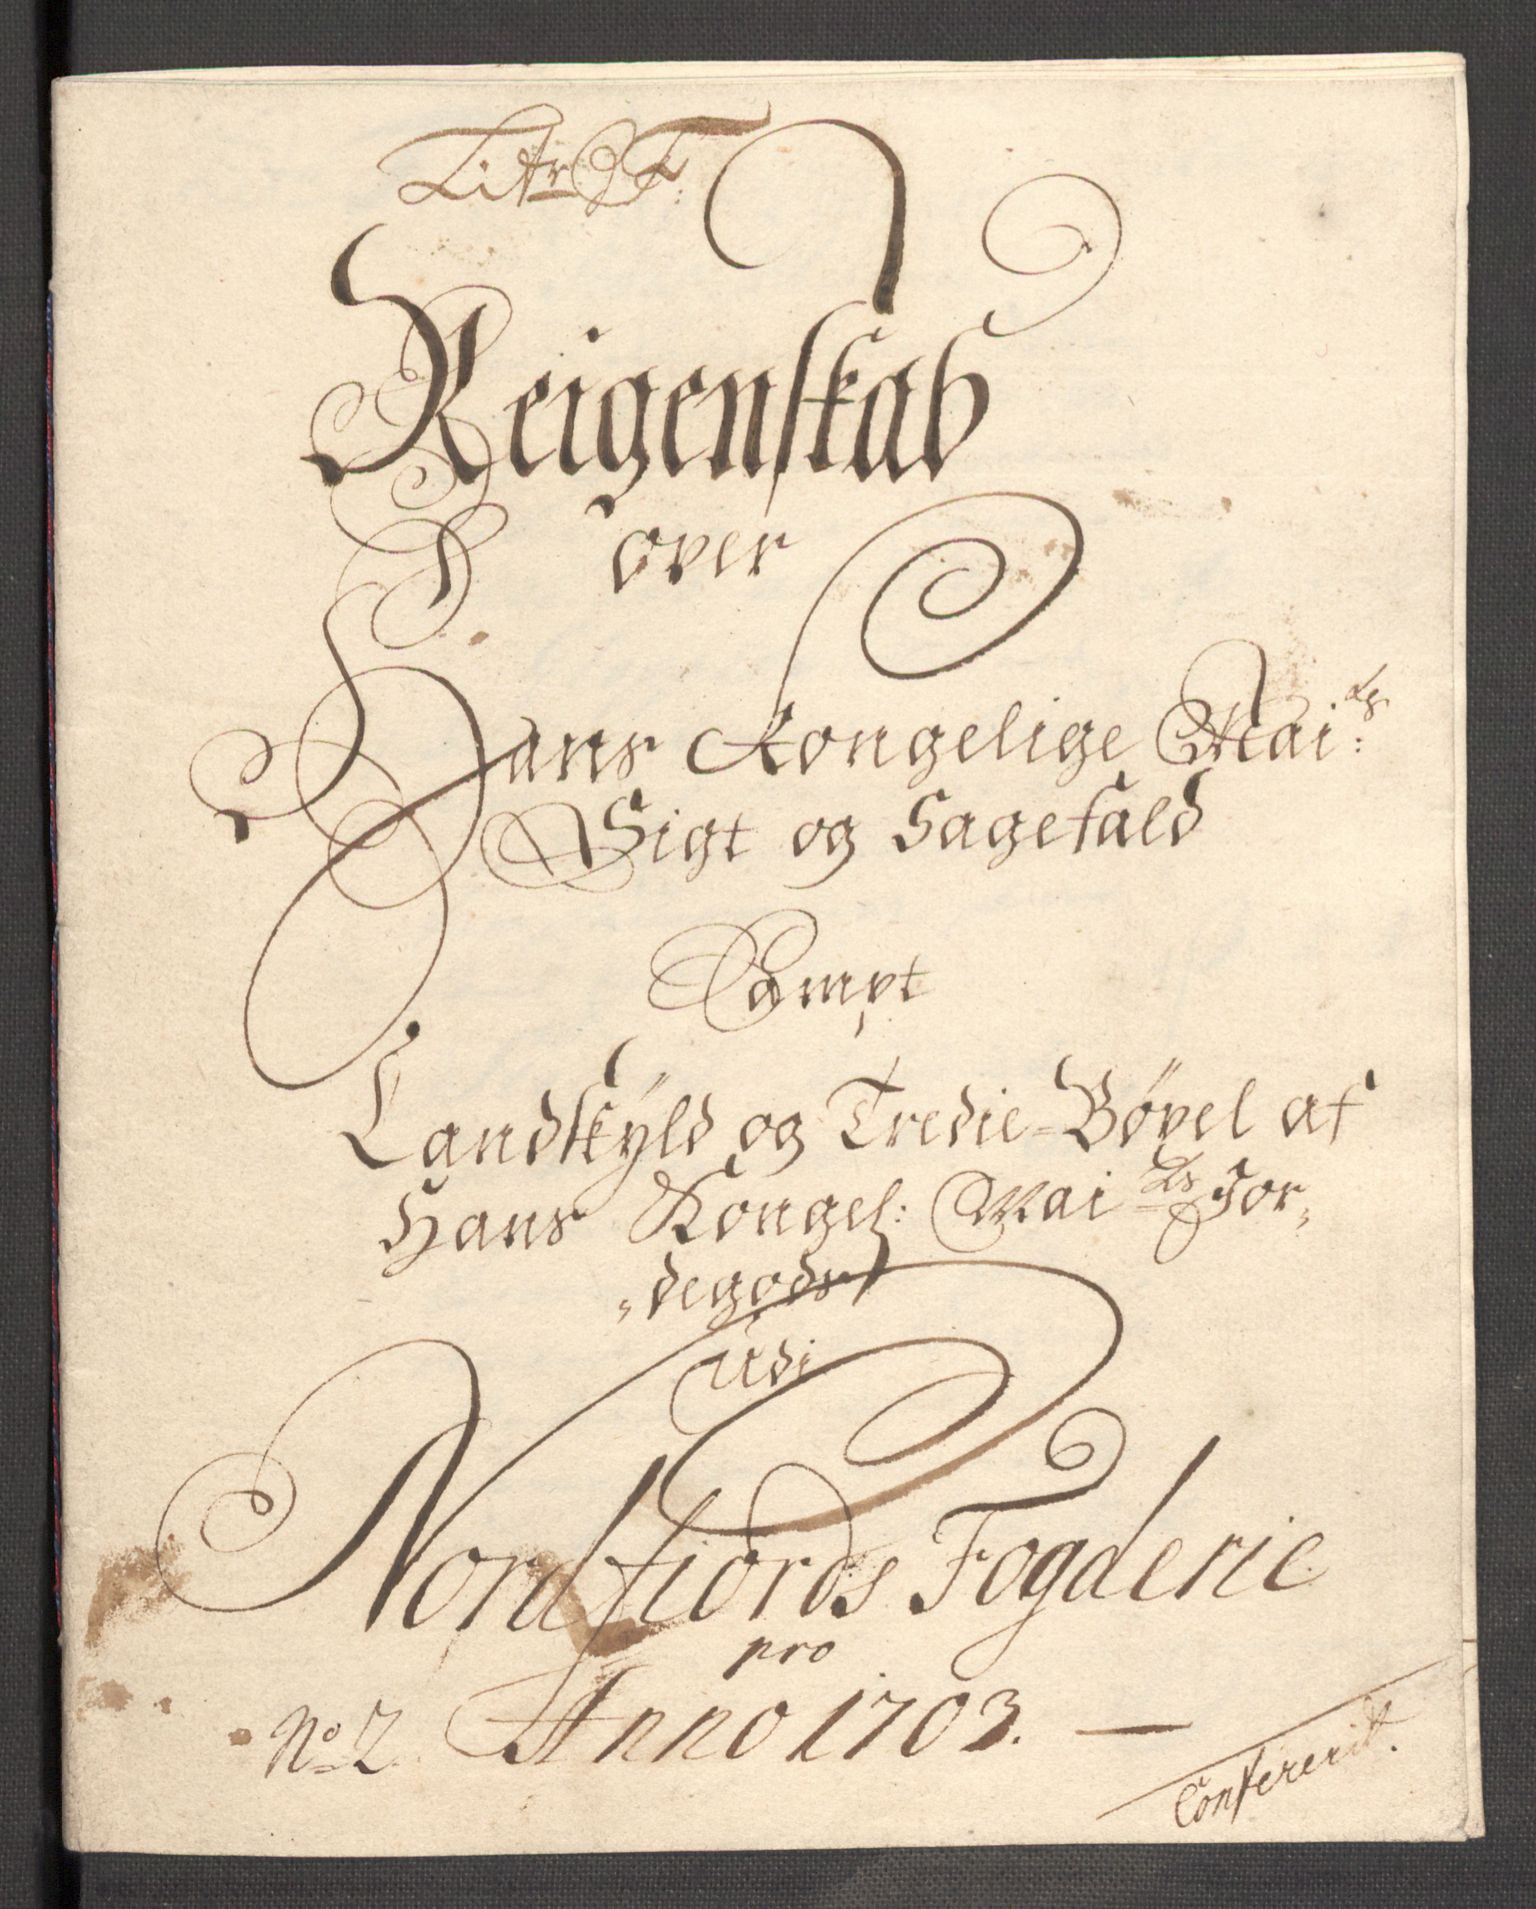 Litr F:
Reigenskab
over
Hans Kongelige Mai: ts
Sigt og Sagefald
Sampt
Landskÿld og Tredie-Bøxel af
Hans Kongel: Mai ts Jor„
„degods
Udi
Nordfiords Fogderie
pro
No 2. Anno 1703. —
Confererit.